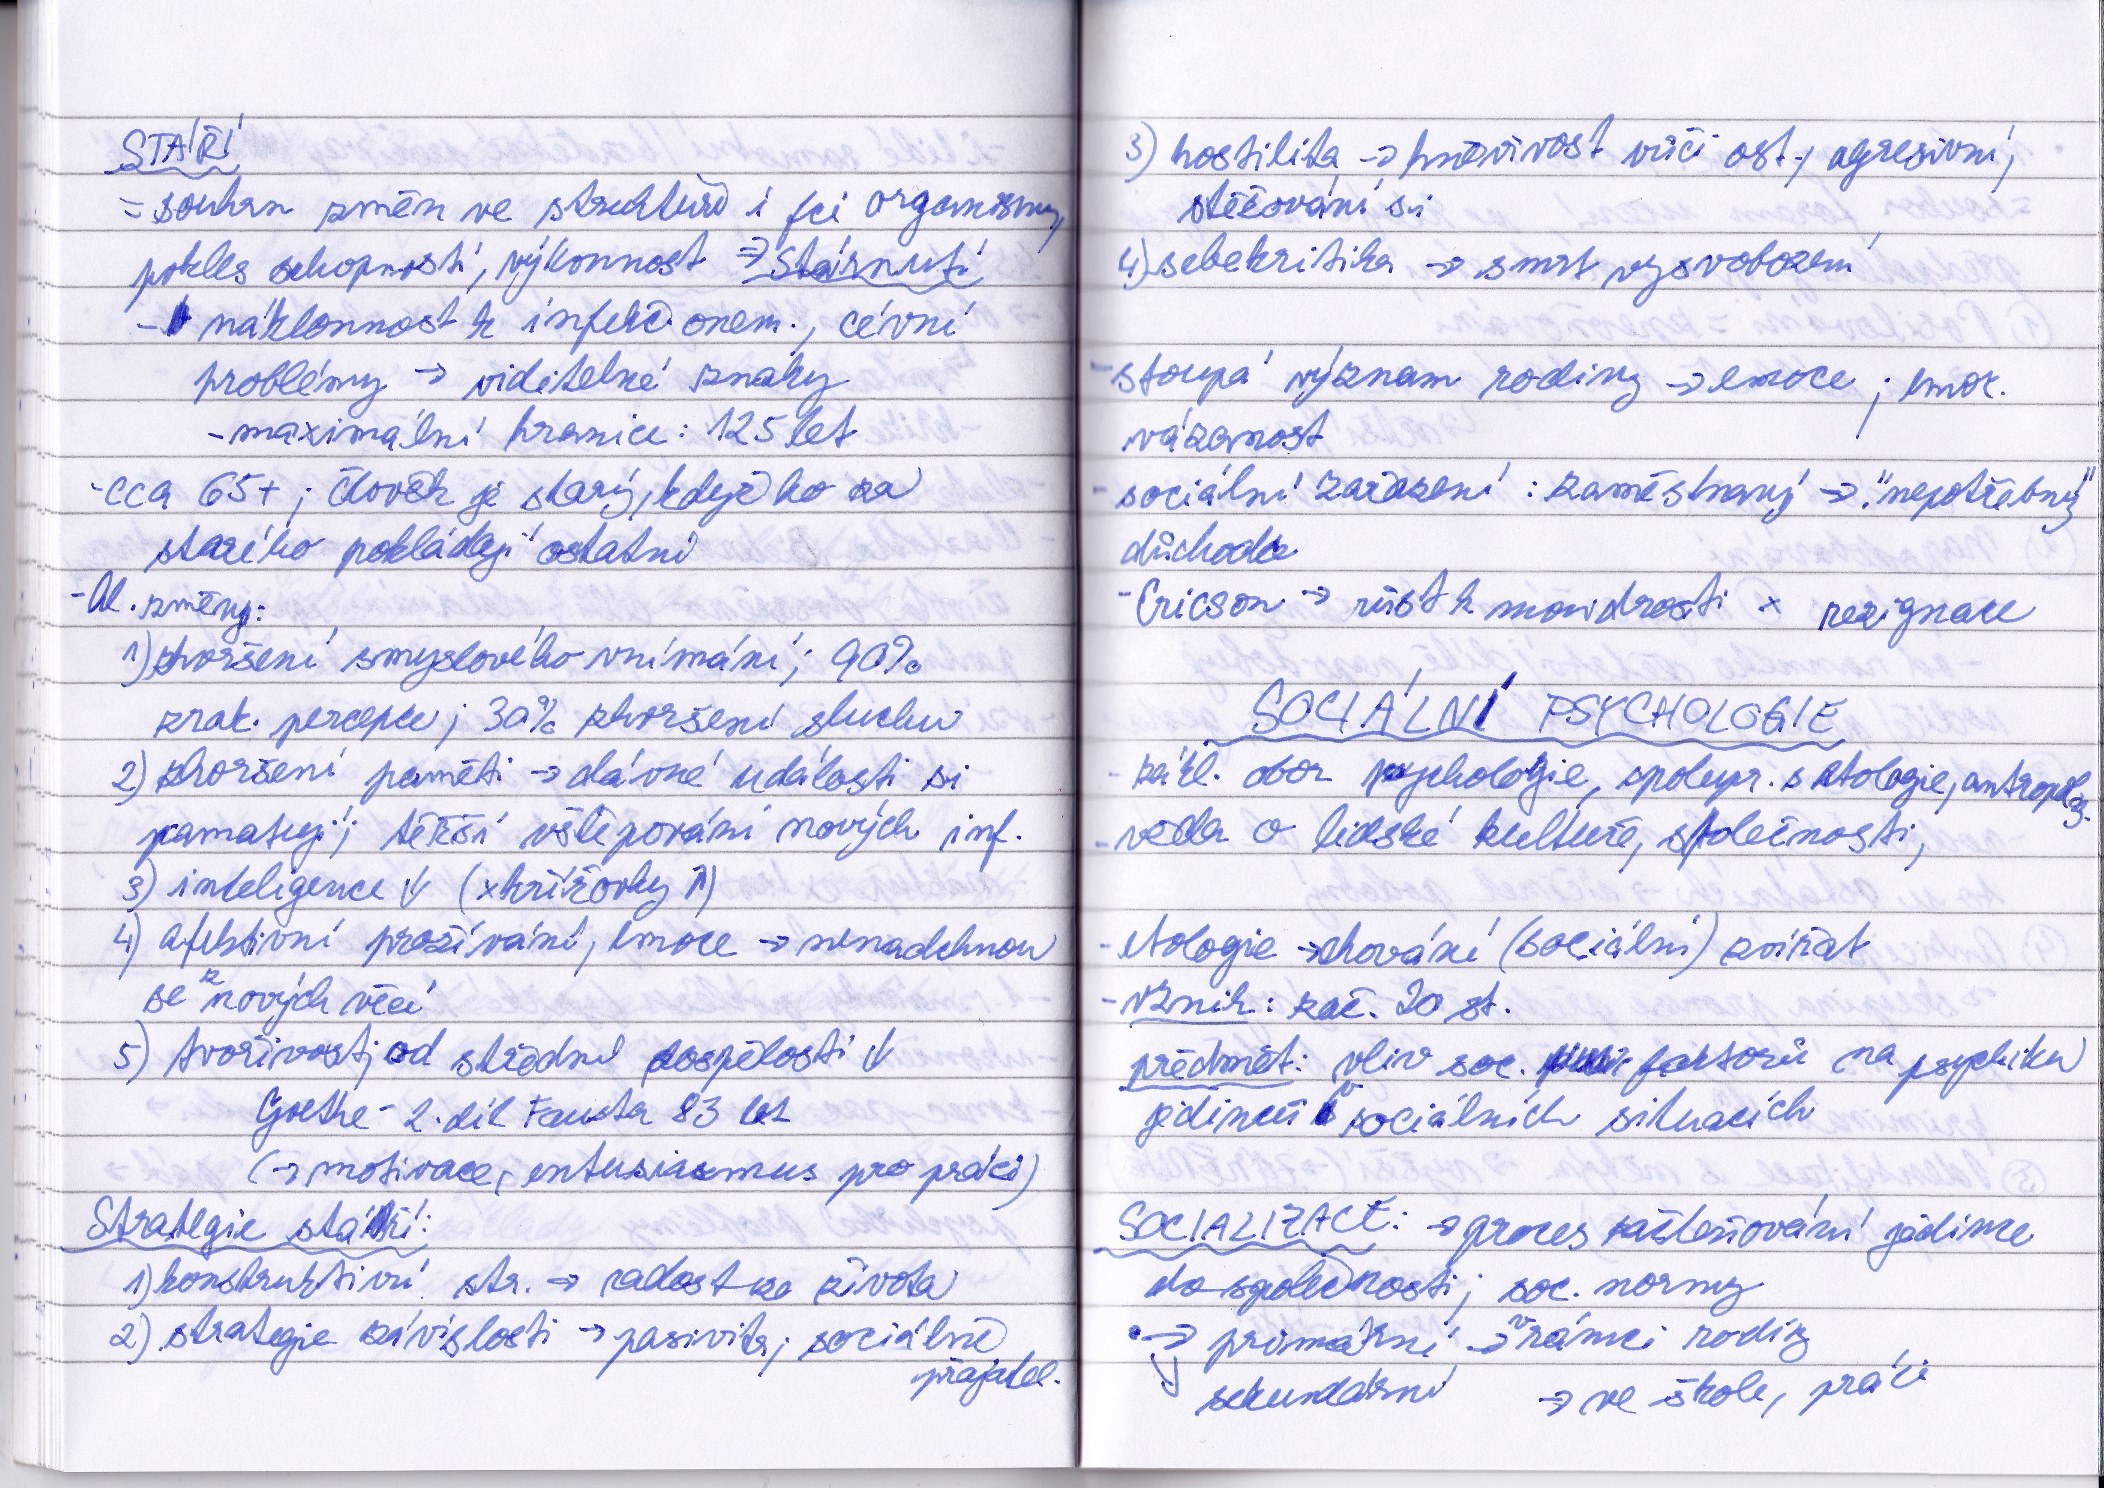 STÁŘÍ
= souhrn změn ve struktuře i fci organismu,
pokles schopností, výkonnost ⇒ Stárnutí
- náklonnost k infekč. onem., cévní
problémy → viditelné znaky
- maximální hranice: 125 let
- cca 65+; člověk je starý, když ho za
starého pokládají ostatní
- změny:
1) zhoršení smyslového vnímání; 90%
zrak. percepce; 30% zhoršení sluchu
2) zhoršení paměti → dávné události si
pamatují; těžší vštěpování nových inf.
3) inteligence ↓ (x křížovky ↑)
4) afektivní prožívání, emoce → nenadchnou
se z nových věcí
5) tvořivost; od střední dospělosti ↓
Goethe - 2. díl Fausta 83 let
(→ motivace, entusiasmus pro práci)
Strategie stáří:
1) konstruktivní str. → radost ze života
2) strategie závislosti → pasivita; sociálně
přijatel.
3) hostilita → hněvivost vůči ost., agresivní,
stěžování si
4) sebekritika → smrt vysvobození
- stoupá význam rodiny → emoce; emoc.
vázanost
- sociální zařazení: zaměstnaný → "nepotřebný"
důchodce
- Ericson → růst k moudrosti x rezignace
SOCIÁLNÍ PSYCHOLOGIE
- zákl. obor psychologie, spolupr. s etologie, antropolog.
- věda o lidské kultuře, společnosti,
- etologie → chování (sociální) zvířat
- vznik: zač. 20 st.
předmět: vliv soc. faktorů na psychiku
jedinců v sociálních situacích
SOCIALIZACE: → proces začleňování jedince
do společnosti; soc. normy
→ primární → v rámci rodiny
↓ sekundární → ve škole, práci